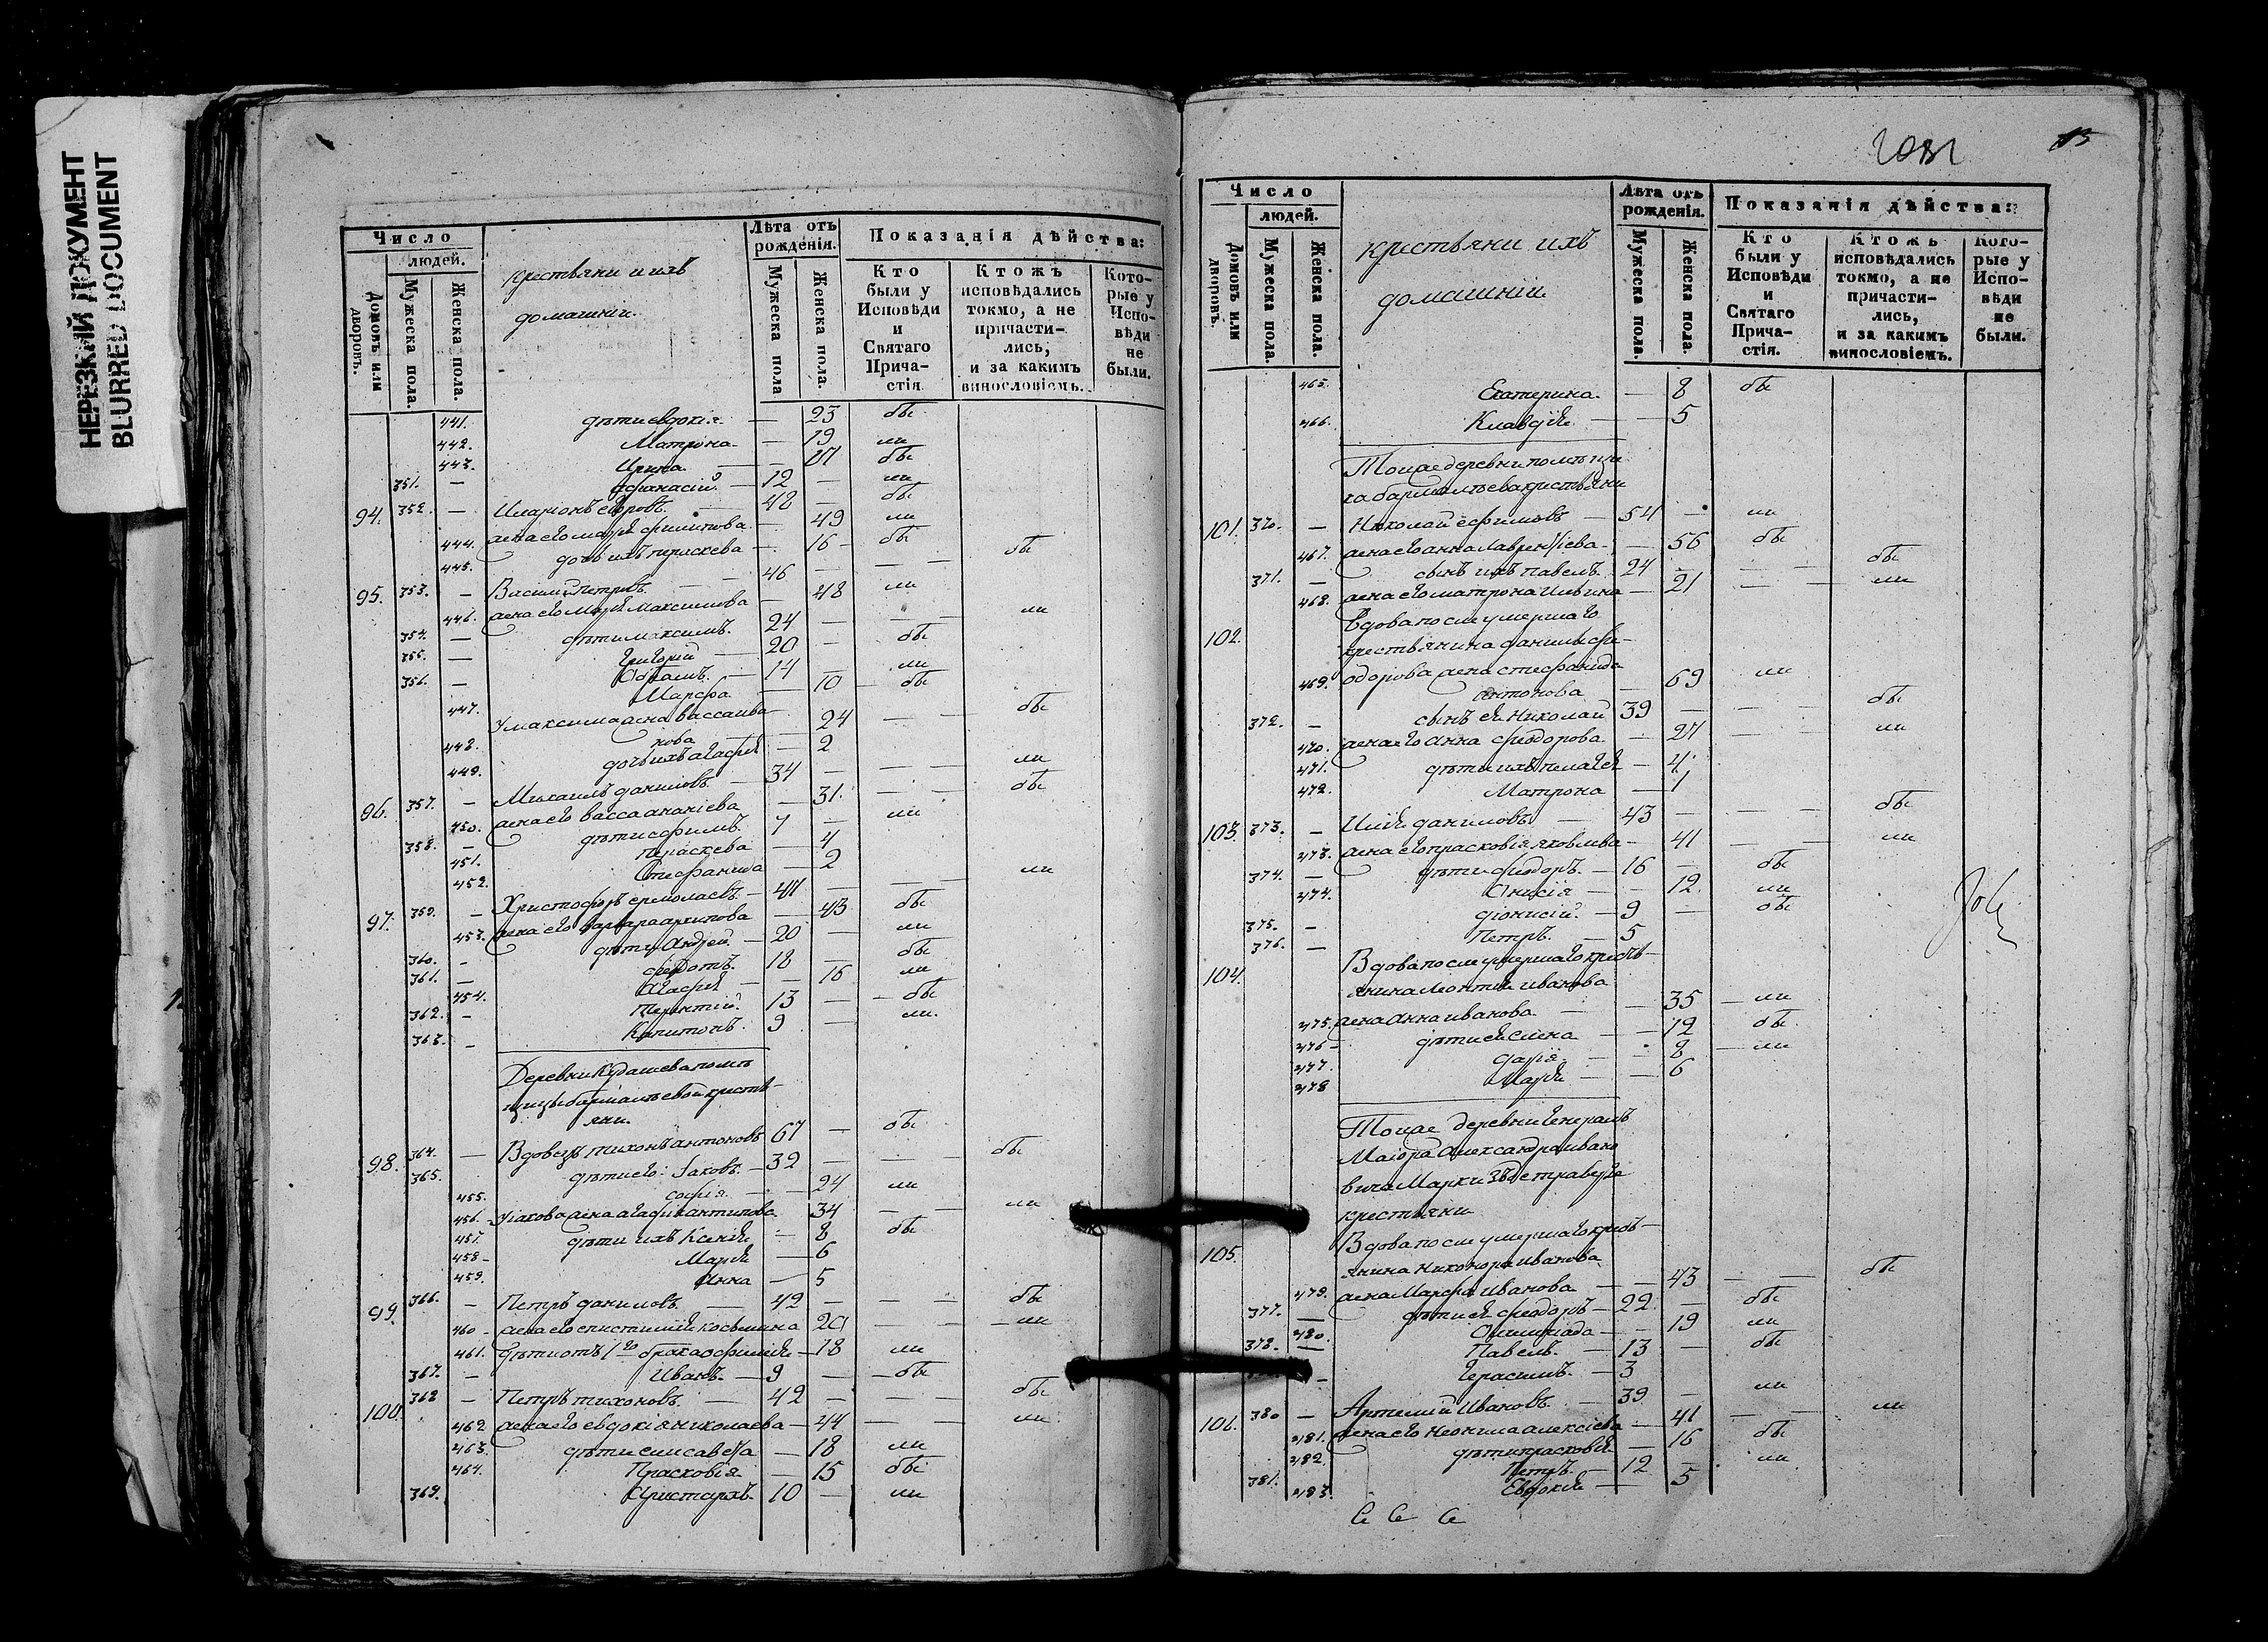 НЕРЕЗКИЙ ДОКУМЕНТ
BLURRED DOCUMENT
Число
людей.
Домовъ или дворовъ.
Мужеска пола.
Женска пола.
крестьяни и ихъ
домашнии.
Лѣта отъ рожденія.
Мужеска пола
Женска пола.
Показанія дѣйства:
Кто были у Исповѣди и Святаго Причастія
Ктожъ исповѣдались токмо, а не причастились, и за какимъ винословіемъ.
Которые у Исповѣди не были.
441. дѣти евдокія — 23 бы
442. Матрона — 19 ли
443. Ирина — 17 бы
351. — афанасий — 12 — ли
94. 352. — Иларіонъ егоровъ 48 — бы
444. жена его марія филипова — 49 ли
445. дочь ихъ параскева — 16 бы
95. 353. — Василий петровъ — 46 — — бы
446. жена его Марія Максимова — 48 ли
354. — дѣти максимъ. 24 — — ли
355. — Григорій — 20 — бы
356. — 14 — ли
447. Марфа — 10 — бы
448. У максима жена васса ива-
нова 24 — — бы
449. дочь ихъ агафія — 2
96. 357. — Михаилъ даниловъ — 34 — — ли
450. жена его васса ананіева — 31. — — бы
358. — дѣти ефимъ. 7 — ли
451. Параскева — 4
452. Стефанида — 2
97. 359. — Христофоръ ермолаевъ — 47 — — ли
453. жена его варвара архипова — 43 бы
360. — дѣти Андрей — 20 — ли
361. — федотъ. 18 — бы
454. Агафія — — 16 ли
362. — Терентій. 13 — — бы
363. — Капитонъ. 9 — ли.
Деревни Кудашева помѣ-
щицы бармалѣевой кресть-
яни.
98. 364. — Вдовецъ тихонъ антоновъ 67 — бы
365. дѣти его: Іаковъ — 32 — — бы
455. софія — — 24 ли
456. У іакова жена агафія антипова 34 — — ли
457. дѣти ихъ Ксенія — 8 бы
458 - Марія — 6
459. Анна — 5
99. 366. — Петръ даниловъ — 42 — — — бы
460 - жена его епистимія косьмина 20 — — ли
461. дѣти отъ 1го брака офимія — 18 ли
367. — Иванъ. — 9 — — бы
100. 368 — Петръ тихоновъ. — 42 — — — бы
462 жена его евдокія николаева — 44 — — ли
463. дѣти елисавета — 18 ли
464. Прасковія — 15 бы
369. Аристархъ. 10 — ли
Число
людей.
Домовъ или дворовъ.
Мужеска пола.
Женска пола.
крестьяни ихъ
домашніи
Лѣта отъ рожденія.
Мужеска пола.
Женска пола.
Показанія дѣйства:
Кто были у Исповѣди и Святаго Причастія.
Ктожъ исповѣдались токмо, а не причастились, и за какимъ винословіемъ.
Которые у Исповѣди не были.
465. Екатерина. — 8 бы
466. Клавдія — 5
Тоиже деревни помѣщи
ка бармалѣева крестьяни
101. 370. — Николай ефимовъ — 54 — ли
467. жена его анна лаврентіева — 56 бы
371. — сынъ ихъ павелъ. 24 — — бы
468. жена его матрона ильина — 21 — — ли
102. Вдова после умершаго
крестьянина данилы фе-
469. одорова жена стефанида
антонова — 69 ли
372. — сынъ ея Николай 39 — — — бы
470. жена его Анна феодорова — 27 — ли
471. дѣти ихъ пелагея — 4
472. Матрона — 1
103. 373. — Илія даниловъ — 43 — — бы
473. жена его прасковія яковлева — 41 — — ли
374. — дѣти феодоръ. — 16 — бы
474. Онисія — — 12. ли
375. — діонисій. — 9 — бы
376. — Петръ. — 5
104. Вдова после умершаго кресть-
янина леонтия иванова
475. жена Анна иванова. — — 35 — ли
476 - дѣти ея елена — — 12 бы.
477. дарія. — — 8 — ли
478 Марія — — 6
Тоиже деревни Генералъ
Маіора Александра ивано
вича Маркизъ де траверзе
крестьяни
105. Вдова после умершаго кресть-
янина никонора иванова
479. жена Марфа иванова — — 43 — — бы
377. — дѣти ея феодоръ — 22 — бы
480. Олимпіада — — 19 ли
378. — Павелъ. — 13 — бы
— Герасимъ. — 3
106. 380 — Артемій Ивановъ. — 39 — ли
481. жена его Неонила алексіева — 41 — — ли
482. дѣти прасковія — 16 бы
381. Петръ. — 12 — ли
483. Евдокія — 5